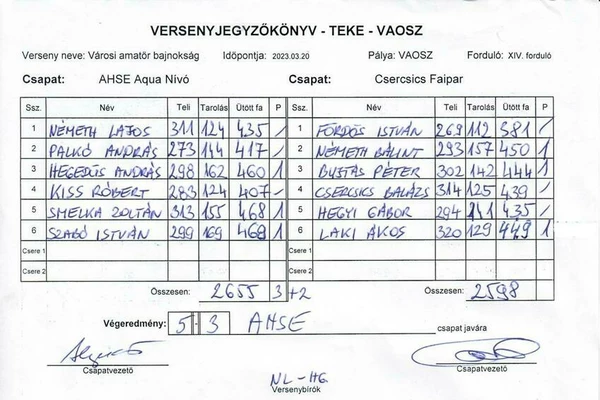 VERSENYJEGYZŐKÖNYV - TEKE - VAOSZ
Verseny neve: Városi amatőr bajnokság Időpontja: 2023.03.20 Pálya: VAOSZ Forduló: XIV. forduló
Csapat: AHSE Aqua Nívó Csapat: Csercsics Faipar
Ssz. Név Teli Tarolás Ütött fa P Ssz. Név Teli Tarolás Ütött fa P
1 NÉMETH LAJOS 311 124 435 / 1 FÖRDŐS ISTVÁN 269 112 381 /
2 PALKÓ ANDRÁS 273 144 417 / 2 NÉMETH BÁLINT 293 157 450 1
3 HEGEDŰS ANDRÁS 298 162 460 1 3 BUSTÁS PÉTER 302 142 444 1
4 KISS RÓBERT 283 124 407 - 4 CSERCSICS BALÁZS 314 125 439 /
5 SMELKA ZOLTÁN 313 155 468 1 5 HEGYI GÁBOR 294 141 435 /
6 SZABÓ ISTVÁN 299 169 468 1 6 LAKI ÁKOS 320 129 449 1
Csere 1 Csere 1
Csere 2 Csere 2
Összesen: 2655 3 +2 Összesen: 2598
Végeredmény: 5 - 3 AHSE csapat javára
Csapatvezető Csapatvezető
NL-HG
Versenybírók